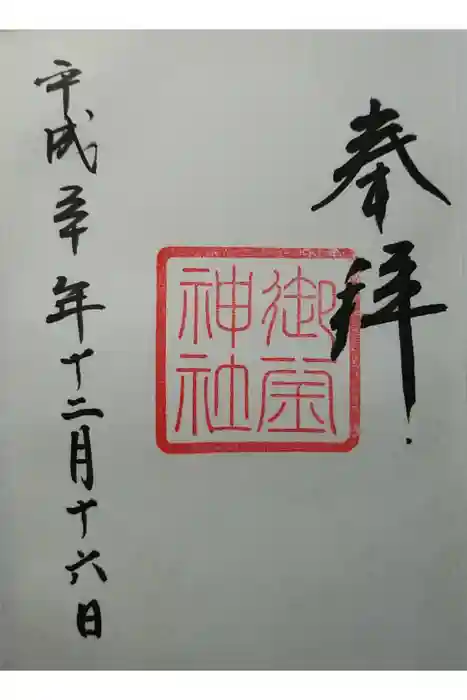 奉拝
御
神社
平成三十年十二月十六日